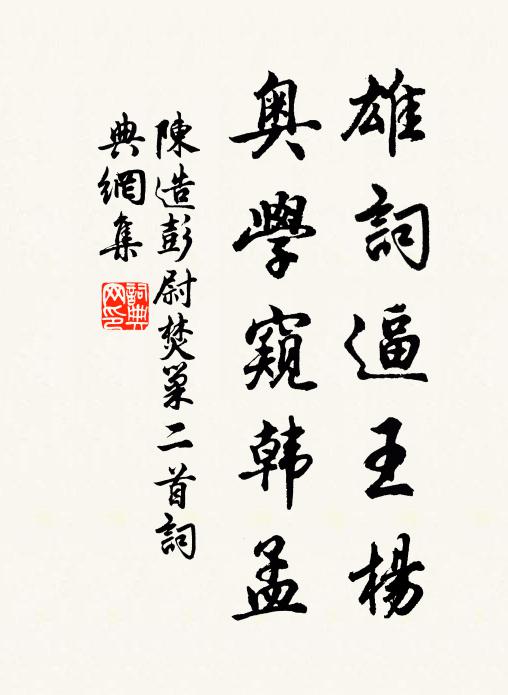 雄詞逼王楊
奥學窺韩孟
陳造彭尉焚巢二首詞
典網集
詞典网印